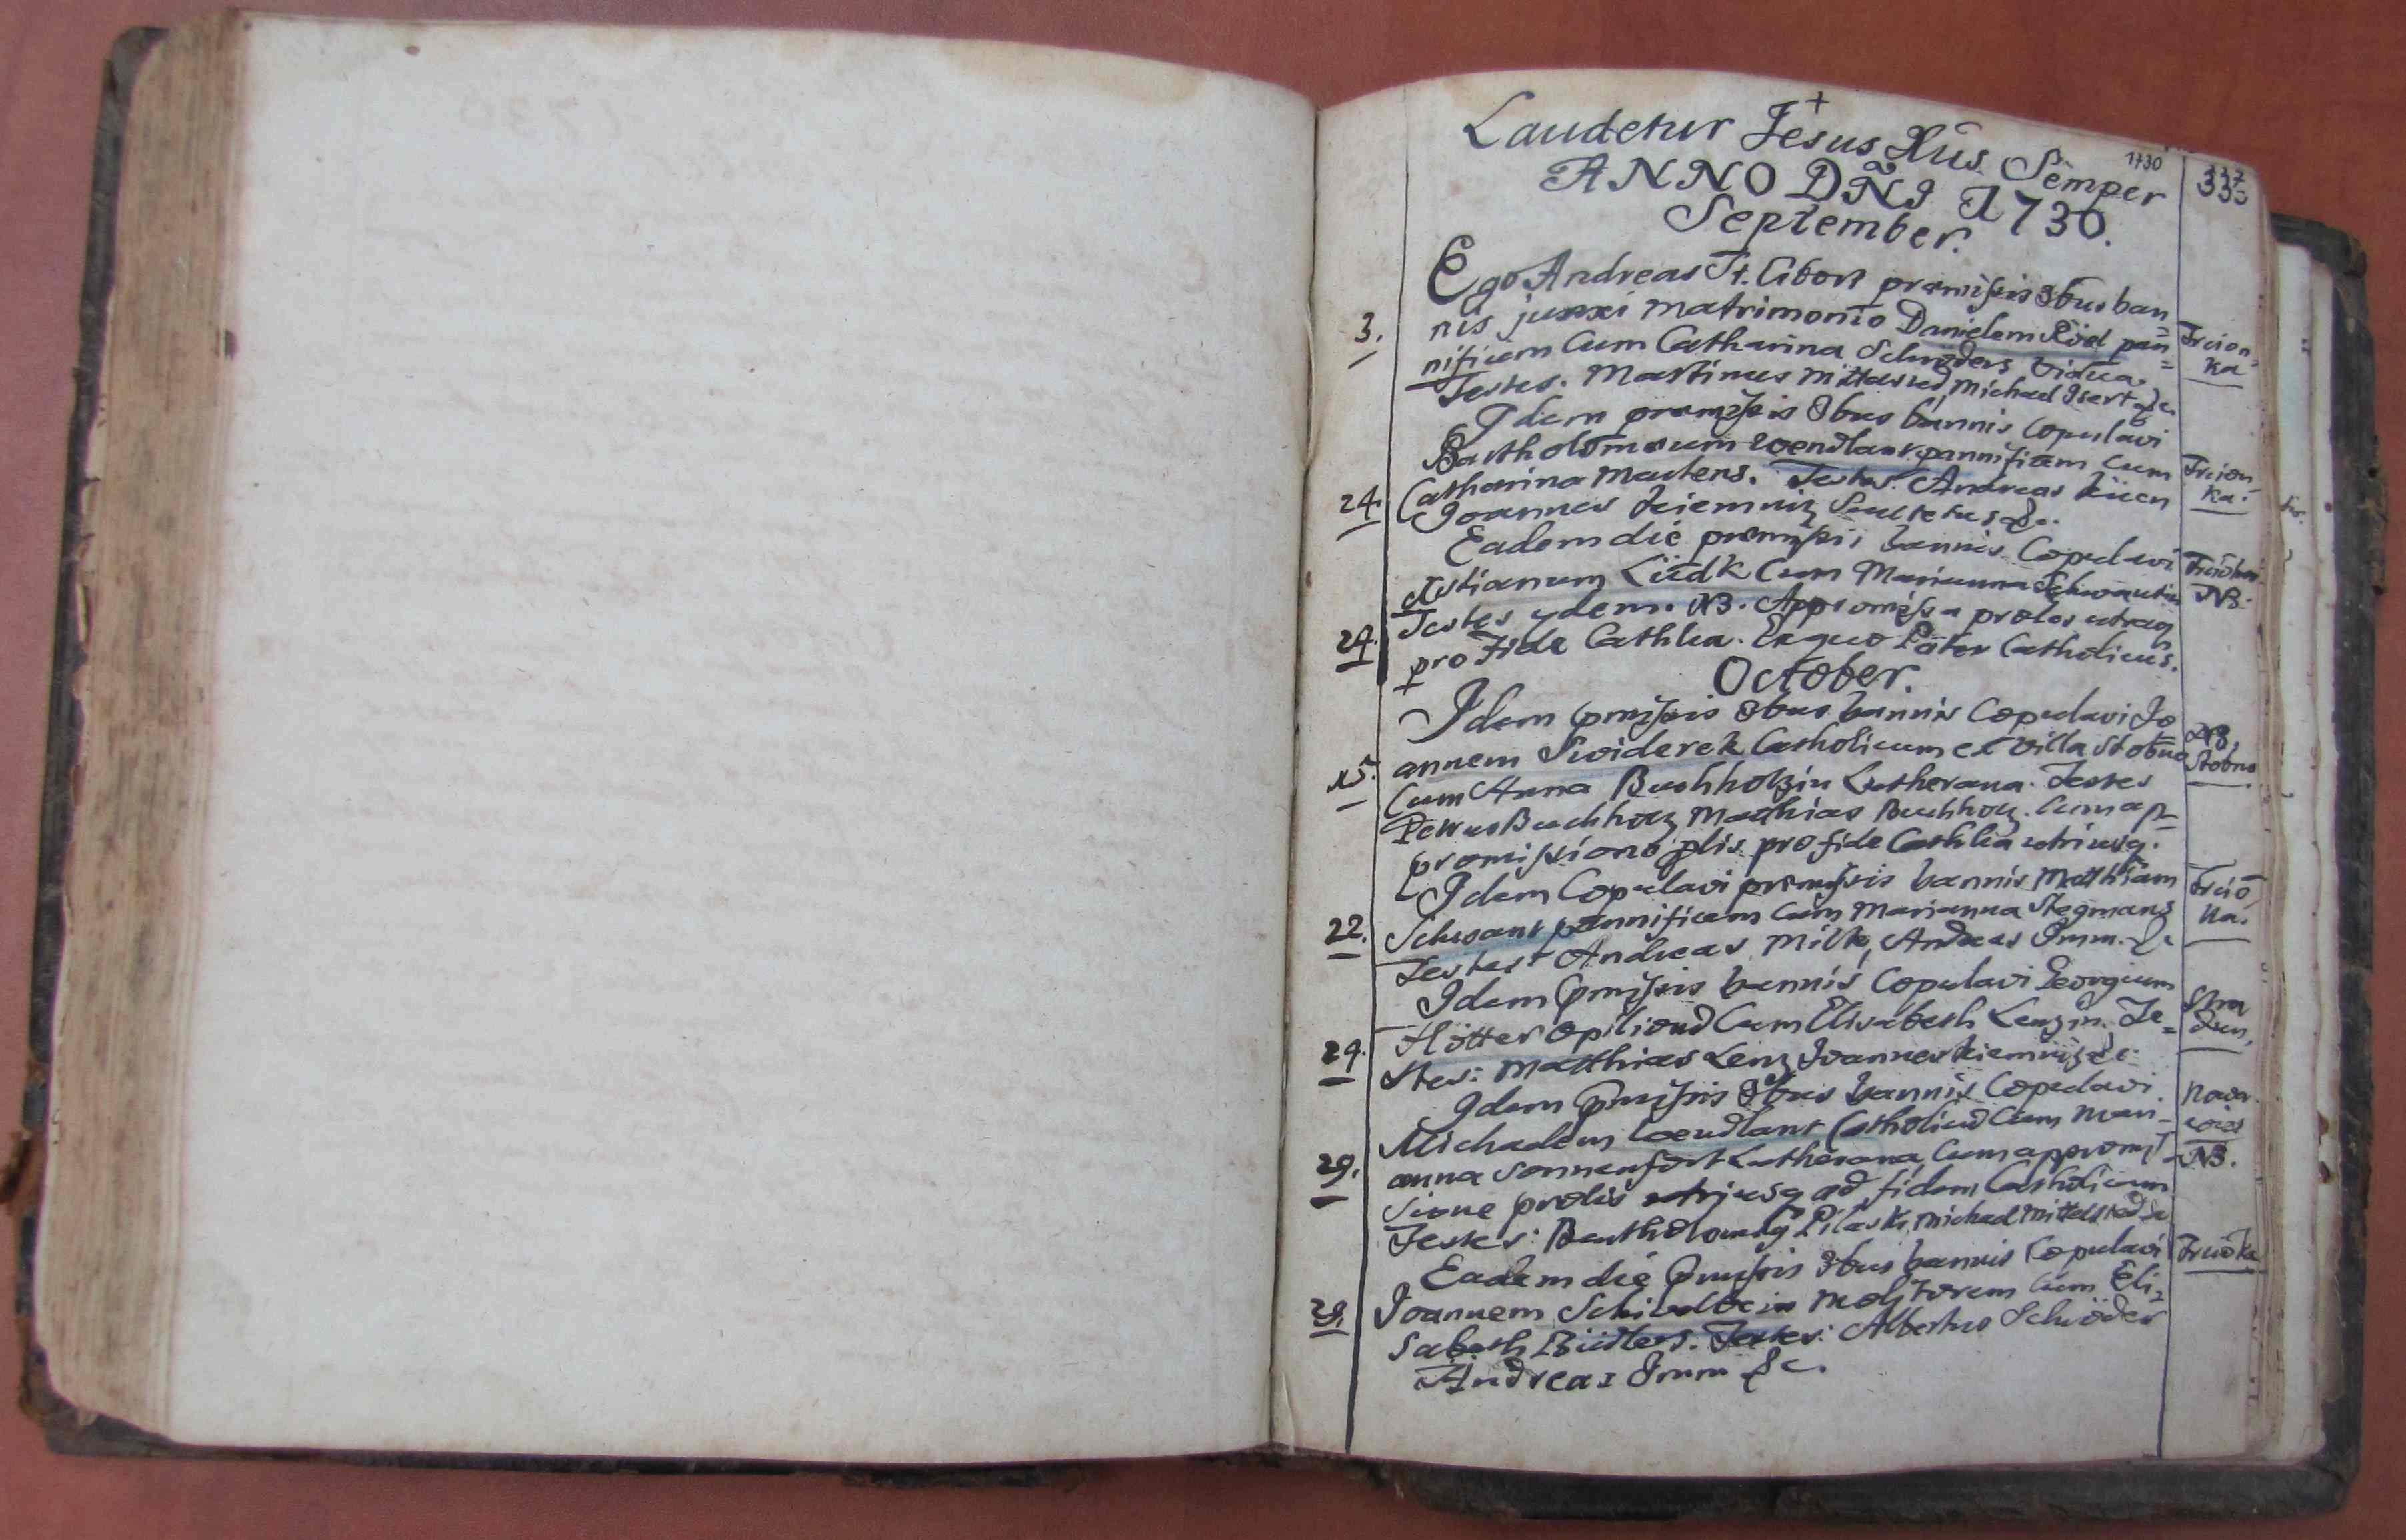 Laudetur Jesus Xus Semper
1730
337
335
ANNO DÑI 1730.
September.
Ego Andreas St. Cibort præmissis 3bus ban=
3. nis junxi matrimonio Danielem Röel pan= Trcion=
nificem Cum Catharina Schröders vidua. ka
Testes. Martinus Mittelsted, Michael Isert &c.
Idem præmissis 3bus bannis Copulavi
Bartholomæum Wendlant pannificem cum Trcion
24. Catharina Martens. Testes. Andreas ka.
Joannes Kiemniz Scultetus &c.
Eadem die præmissis bannis Copulavi
Xstianum Lüdk Cum Marianna Schwantin
Testes ydem. NB. Appromissa proles utraq NB.
24. pro Fide Cathlca. Pater Catholicus.
October.
Idem præmissis 3bus bannis Copulavi Jo= NB.
15. annem Swiderek Catholicum ex villa Stobno Stobno
Cum Anna Buchholzin Lutherana. Testes
Petrus Buchholz Mathias Buchholz. Cum ap=
promissione plis pro fide Cathlca utriusq.
Idem Copulavi præmissis bannis Matthiam Trciō
22. Schwant pannificem Cum Marianna Stegmans ka.
Testes Andreas Milk, Andreas Imm. &c
Idem præmissis bannis Copulavi Georgium
24. Hötter opilionē Cum Elisabeth Lenzin. Te= Stra
stes: Matthias Lenz Joannes Kiemniz &c. dun.
Idem præmissis 3bus bannis Copulavi Nowa
Michaelem Wendlant Catholicū Cum Mari= wies
29. anna Sonnenfort Lutherana, Cum appromis= NB.
sione prolis utriusq ad fidem Catholicam
Testes: Bartholomeq Pilarsk, Michael Mittelsted &c
Eadem die præmissis 3bus bannis Copulavi Trciōka
29. Joannem Schivelbein Molitorem Cum Eli=
sabeth Büdlers. Testes: Albertus Schröder
Andreas Imm &c.